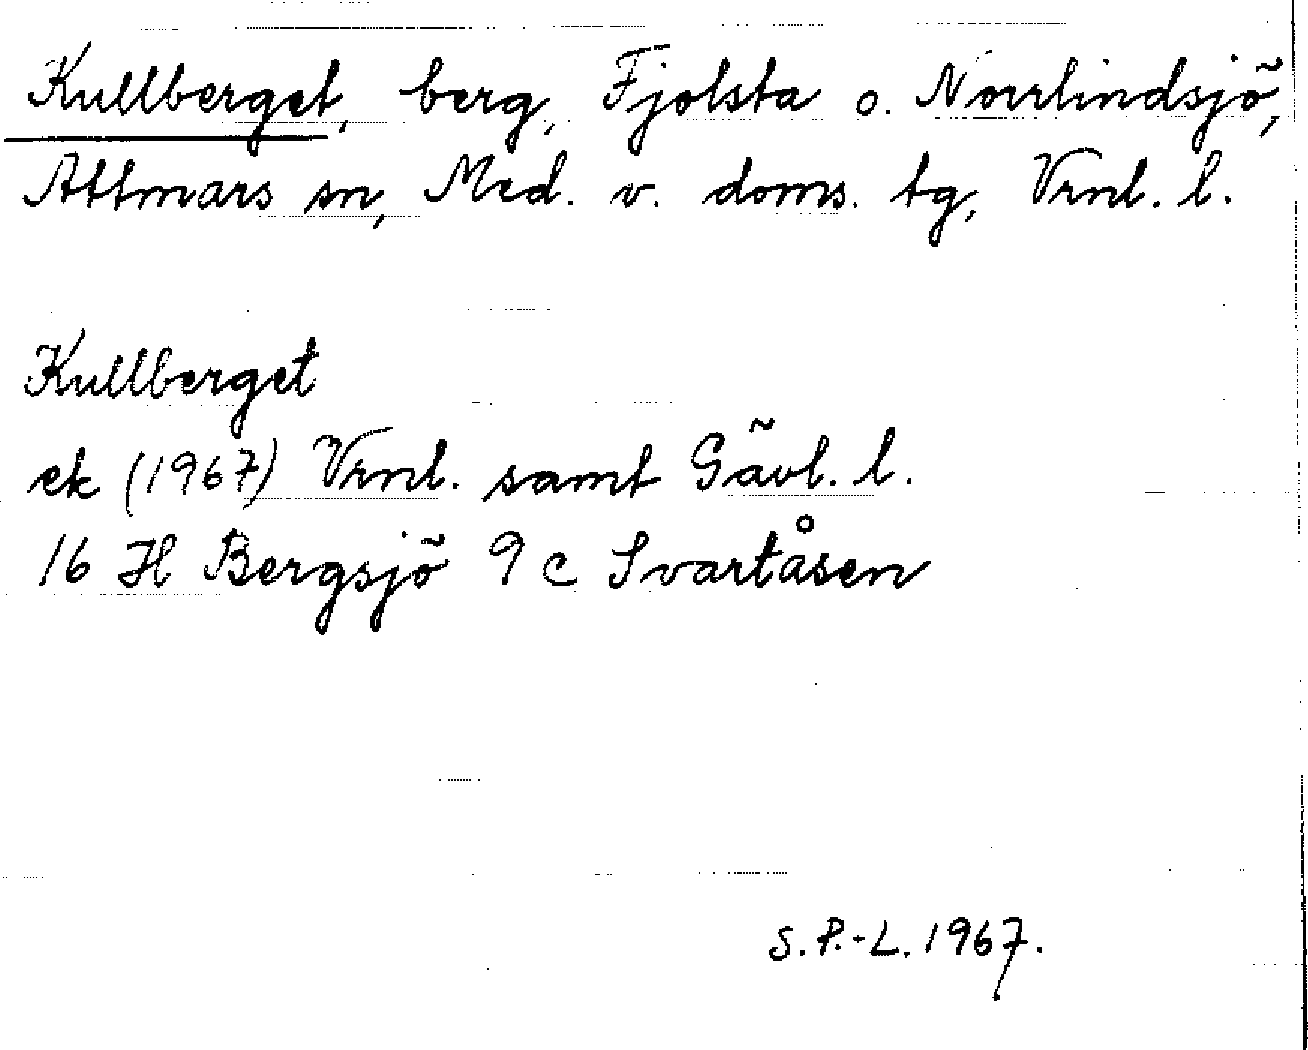 Kullberget, berg, Fjolsta o. Norrlindsjö,
Attmars sn, Med. v. doms. tg, Vrnl. l.
Kullberget
ek (1967) Vrnl. samt Gävl. l.
16 H Bergsjö 9 c Svartåsen
S. P.-L. 1967.